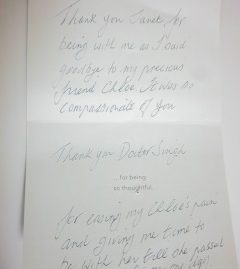 Thank you Janet for
being with me as I said
goodbye to my precious
friend Chloe. It was so
compassionate of you
Thank you Doctor Singh
... for being
so thoughtful.
for easing my Chloe's pain
and giving me time to
be with her till she passed